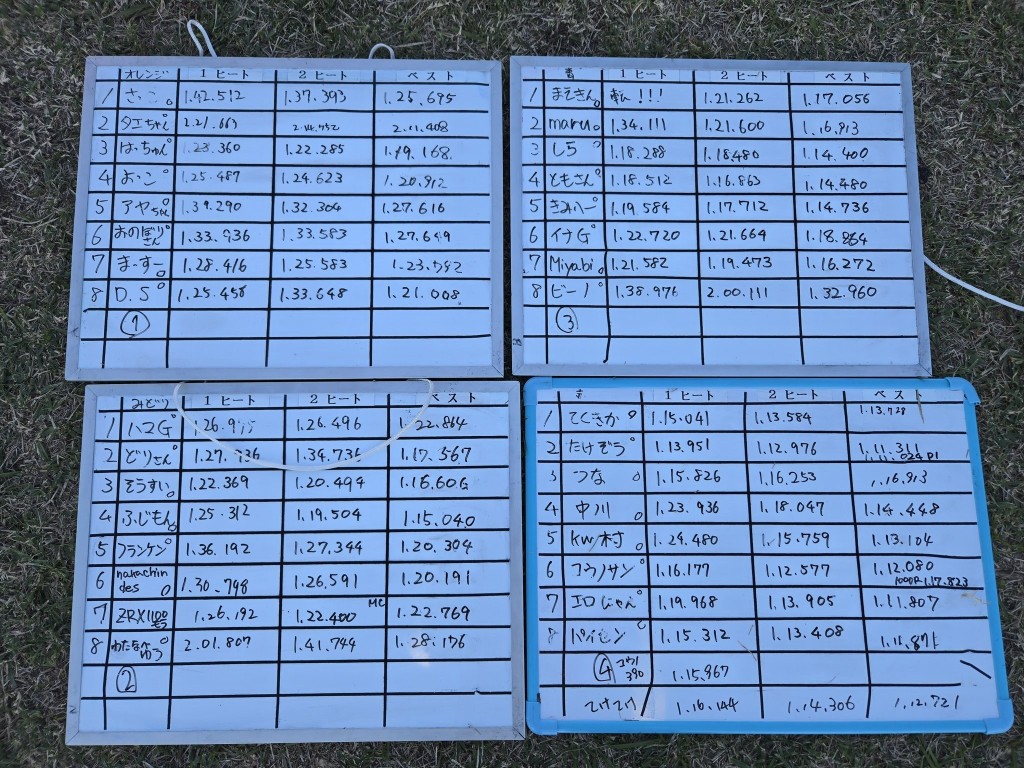 オレンジ 1ヒート 2ヒート ベスト
1 さっこ。 1.42.512 1.37.393 1.25.695
2 タエちゃん 2.21.663 2.11.408
3 はっちゃん 1.23.360 1.22.285 1.19.168
4 よっこ 1.25.487 1.24.623 1.20.912
5 アヤちゃん 1.39.290 1.32.304 1.27.616
6 おのぼりさん 1.33.936 1.33.583 1.27.649
7 まーすー。 1.28.416 1.25.583
8 D.S 1.25.458 1.33.648 1.21.008
①
青 1ヒート 2ヒート ベスト
1 まえきん。 転!!! 1.21.262 1.17.056
2 maru。 1.34.111 1.21.600 1.16.913
3 しろ 1.18.288 1.18.480 1.14.400
4 ともさん 1.18.512 1.16.863 1.14.480
5 きみへー 1.19.584 1.17.712 1.14.736
6 イナG 1.22.720 1.21.664 1.18.864
7 Miyabi。 1.21.582 1.19.473 1.16.272
8 ビーノ 1.38.976 2.00.111 1.32.960
③
みどり 1ヒート 2ヒート ベスト
1 ハマG 1.26.496 1.22.864
2 どりさん 1.27.936 1.34.736 1.17.567
3 そうすい。 1.22.369 1.20.494 1.16.606
4 ふじもん。 1.25.312 1.19.504 1.15.040
5 フランケン 1.36.192 1.27.344 1.20.304
6 nakachindes 1.30.798 1.26.591 1.20.191
7 ZRX1100 1.26.192 1.22.400 MC 1.22.769
8 わたなべゆう 2.01.807 1.41.744 1.28.176
②
1ヒート 2ヒート ベスト
1 てくきか 1.15.041 1.13.584 1.13.728
2 たけぞう 1.13.951 1.12.976 1.11.311
1.11.024 P1
3 つな 1.15.826 1.16.253 1.16.913
4 中川 1.23.936 1.18.047 1.14.448
5 kw村 1.24.480 1.15.759 1.13.104
6 コウノサン 1.16.177 1.12.577 1.12.080
1000R 1.17.823
7 エロじゃん 1.19.968 1.13.905 1.11.807
8 パイセン 1.15.312 1.13.408 1.11.871
④ コウノ 390 1.15.967
てけてけ 1.16.144 1.14.306 1.12.721